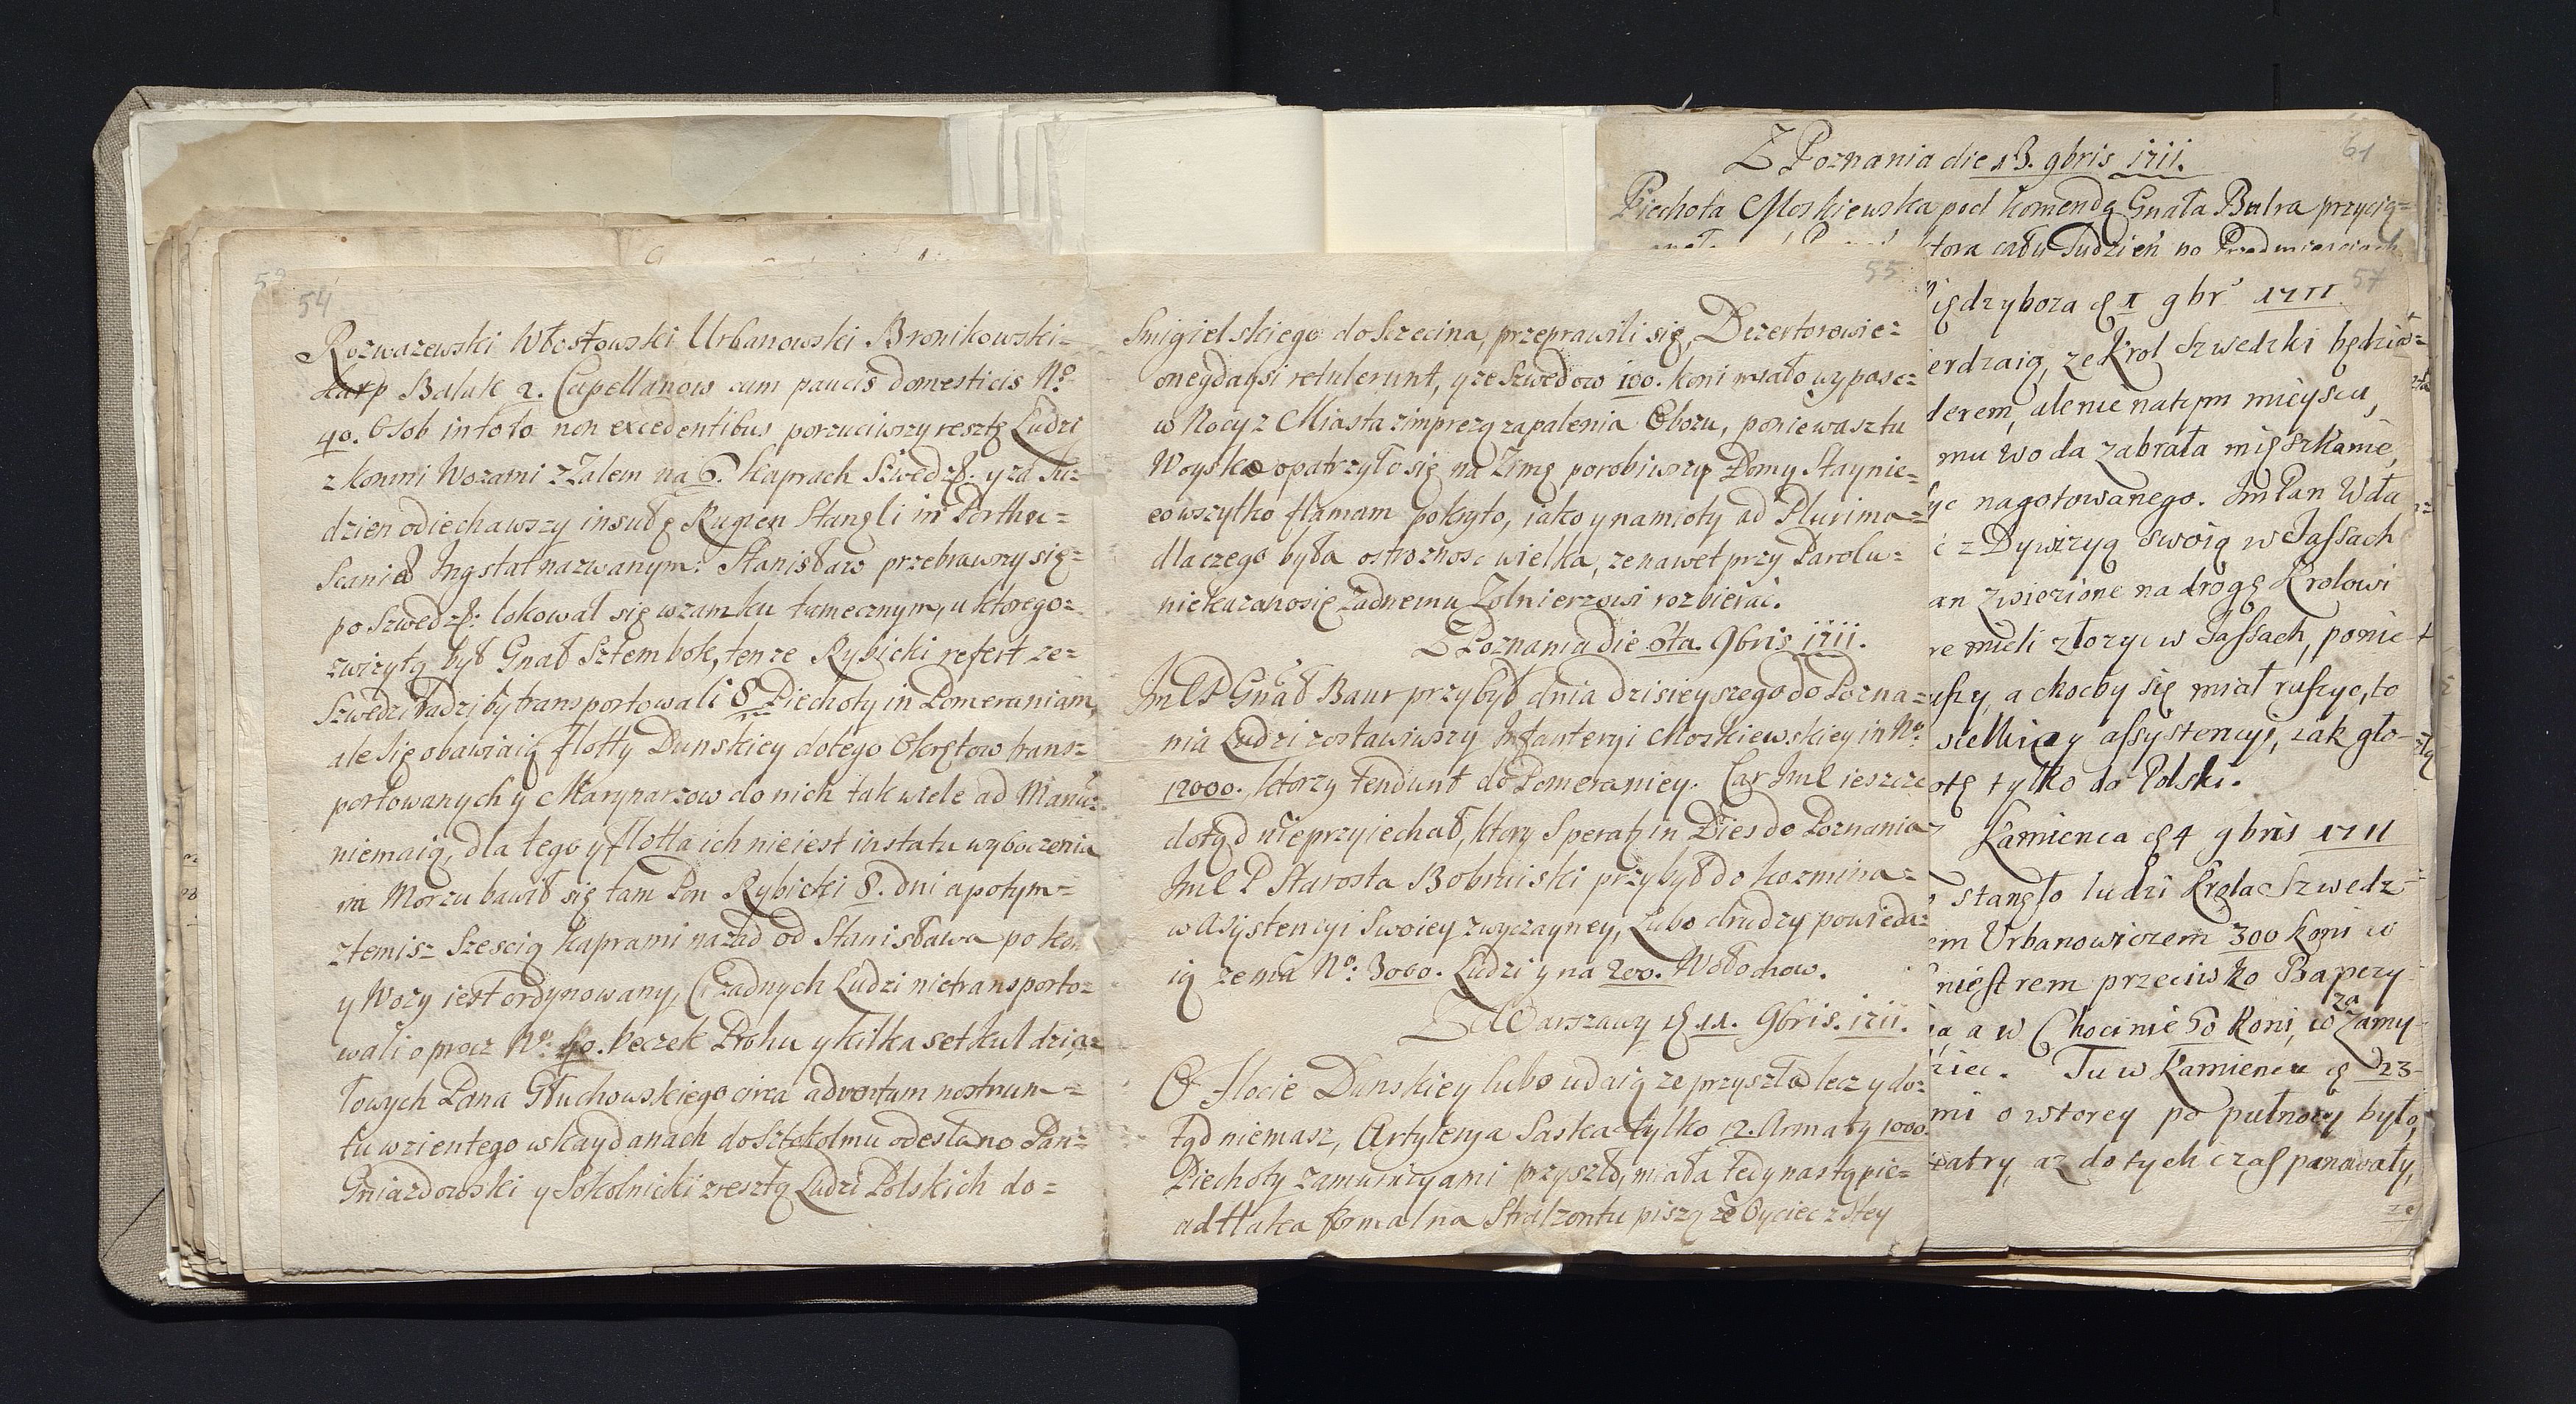 54
Rozwazewski Włostowski Urbanowski Bronikowski=
Karp Baluk 2. Capellanow cum paucis domesticis No
40. Osob in toto non excedentibus porzuciwszy resztę Ludzi
z konmi Wozami z Zalem na 6. Kaprach Szwedz: y za tu=
dzien odiechawszy insułę Rugien Stanęli in Porthu=
Scaniæ Ingstat nazwanym: Stanisław przebrawszy się=
po Szwedz: lokował się w zamku tamecznym, u ktorego=
z wizytą był Gnał Sztembok, tenze Rybicki refert ze=
Szwedzi radzi by transportowali 8 Piechoty in Pomeraniam,
ale się obawiaią flotty Dunskiey do tego Okrętow trans=
portowanych y Marynarzow do nich tak wiele ad Manus=
niemaią, dla tego y flotta ich nie iest in statu wyboczenia
na Morzu bawił się tam Pan Rybicki 8. dni a potym=
ztemisz Szescią kaprami nazad od Stanisława po kon
y Wozy iest ordynowany, Ci zadnych Ludzi nietransporto=
wali oprocz No: 40. beczek Prohu y kilka set kul dzia=
łowych Pana Głuchowskiego circa adventum nostrum=
tu wzientego w kaydanach do Sztokolmu odesłano Pan=
Gniazdowski y Sokolnicki z resztą Ludzi Polskich do=
55
Smigielskiego do Szecina, przeprawili się, Dezertorowie=
onegdaysi retulerunt, y ze Szwedow 100. koni miało wypasc=
w Nocy z Miasta z imprezą zapalenia Obozu, poniewasz tu
Woysko opatrzyło się na Zimę porobiwszy Domy Staynie=
co wszytko słamam pokryto, iako y namioty ad Plurima=
dla czego była ostroznosc wielka, ze nawet przy Parolu=
niekazano się zadnemu Zolnierzowi rozbierać.
Z Poznania die 6ta. 9bris 1711.
Jmć P Gnał Baur przybył dnia dzisieyszego do Pozna=
nia Ludzi zostawiwszy Infanteryi Moskiewskiey in No:
12000., ktorzy tendunt do Pomeraniey. Car Jmć ieszcze
dotąd nieprzyiechał, ktory Speratur in Dies do Poznania
Jmć P Starosta Bobruiski przybył do Kozmina=
w Asystencyi Swoiey zwyczayney, Lubo drudzy powieda=
ią ze ma No: 3000. Ludzi y na 200. Wołochow.
Z Warszawy d 11. 9bris. 1711.
O flocie Dunskiey lubo udaią ze przyszła lecz y do=
tąd niemasz, Artylerya Saska tylko 12. Armaty 1000.
Piechoty z amunicyami przyszło, miała tedy nastąpic=
adttaka formalna Stralzontu piszą ze Wyciec z tey
61
Z Poznania die 13. 9bris 1711.
Piechota Moskiewska pod komendą Gnała Bulra przycią=
tora cały Tudzień po Przedmiesciach
57
iędzyboza d 1 9br 1711
erdzaią, ze Krol Szwedzki będzie=
derem, ale nie natym mieyscu,
mu woda zabrała mięszkanie,
yc nagotowanego. Jm Pan Wda
z Dywizyą swoią w Jassach
an zwiezione na drogę Krolowi
re mieli złozyc w Jassach, ponie
uszy, a chocby się miał ruszyc, to
wielkiey assystencyi, iak gło-
otę tylko do Polski.
Kamienca d 4 9bris 1711
stanęło ludzi Krola Szwedz
em Urbanowiczem 300 koni w
niestrem przeciwko Bapczy
a, a w Chocinie 50 koni, w za Zamy-
iec. Tu w Kamiencu d 23
mi o wtorey po pułnocy było,
iatry, az do tych czas panowały,
ze